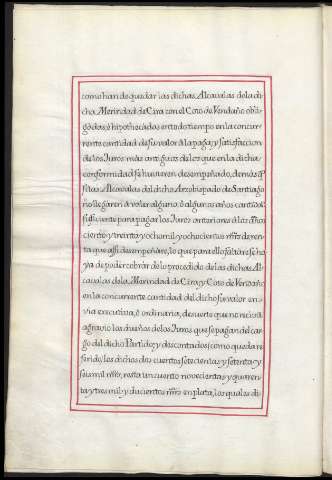 como han de quedar las dichas Alcavalas de la di-
cha Merindad de Cira con el Coto de Vendaño obli-
gados, è hipothecados en todo tiempo en la concur-
rente cantidad de su valor à la paga, y satisfaccion
de los Juros mas antiguos de los que en la dicha
conformidad se huvieren desempeñado, demás q̃
si las Alcavalas del dicho Arzobispado de Santiago
no llegaren à valer alguno, ò algunos años cantidad
suficiente para pagar los Juros anteriores à las
ciento y treinta y ocho mil y ochocientos mrs̃ de ren-
ta que assi desempeñare, lo que para ello faltare se ha-
ya de poder cobrar de lo procedido de las dichas Al-
cavalas de la Merindad de Cira, y Coto de Vendaño
en la concurrente cantidad del dicho su valor en
via executiva, ò ordinaria, de suerte que no reciva
agravio los dueños de los Juros que se pagan del car-
go del dicho Partido; y descontados (como queda re-
ferido) los dichos dos cuentos setecientas y setenta y
seis mil mrs̃, resta un cuento novecientas y quaren-
ta y tres mil y ducientos mrs̃ en plata, los quales di-